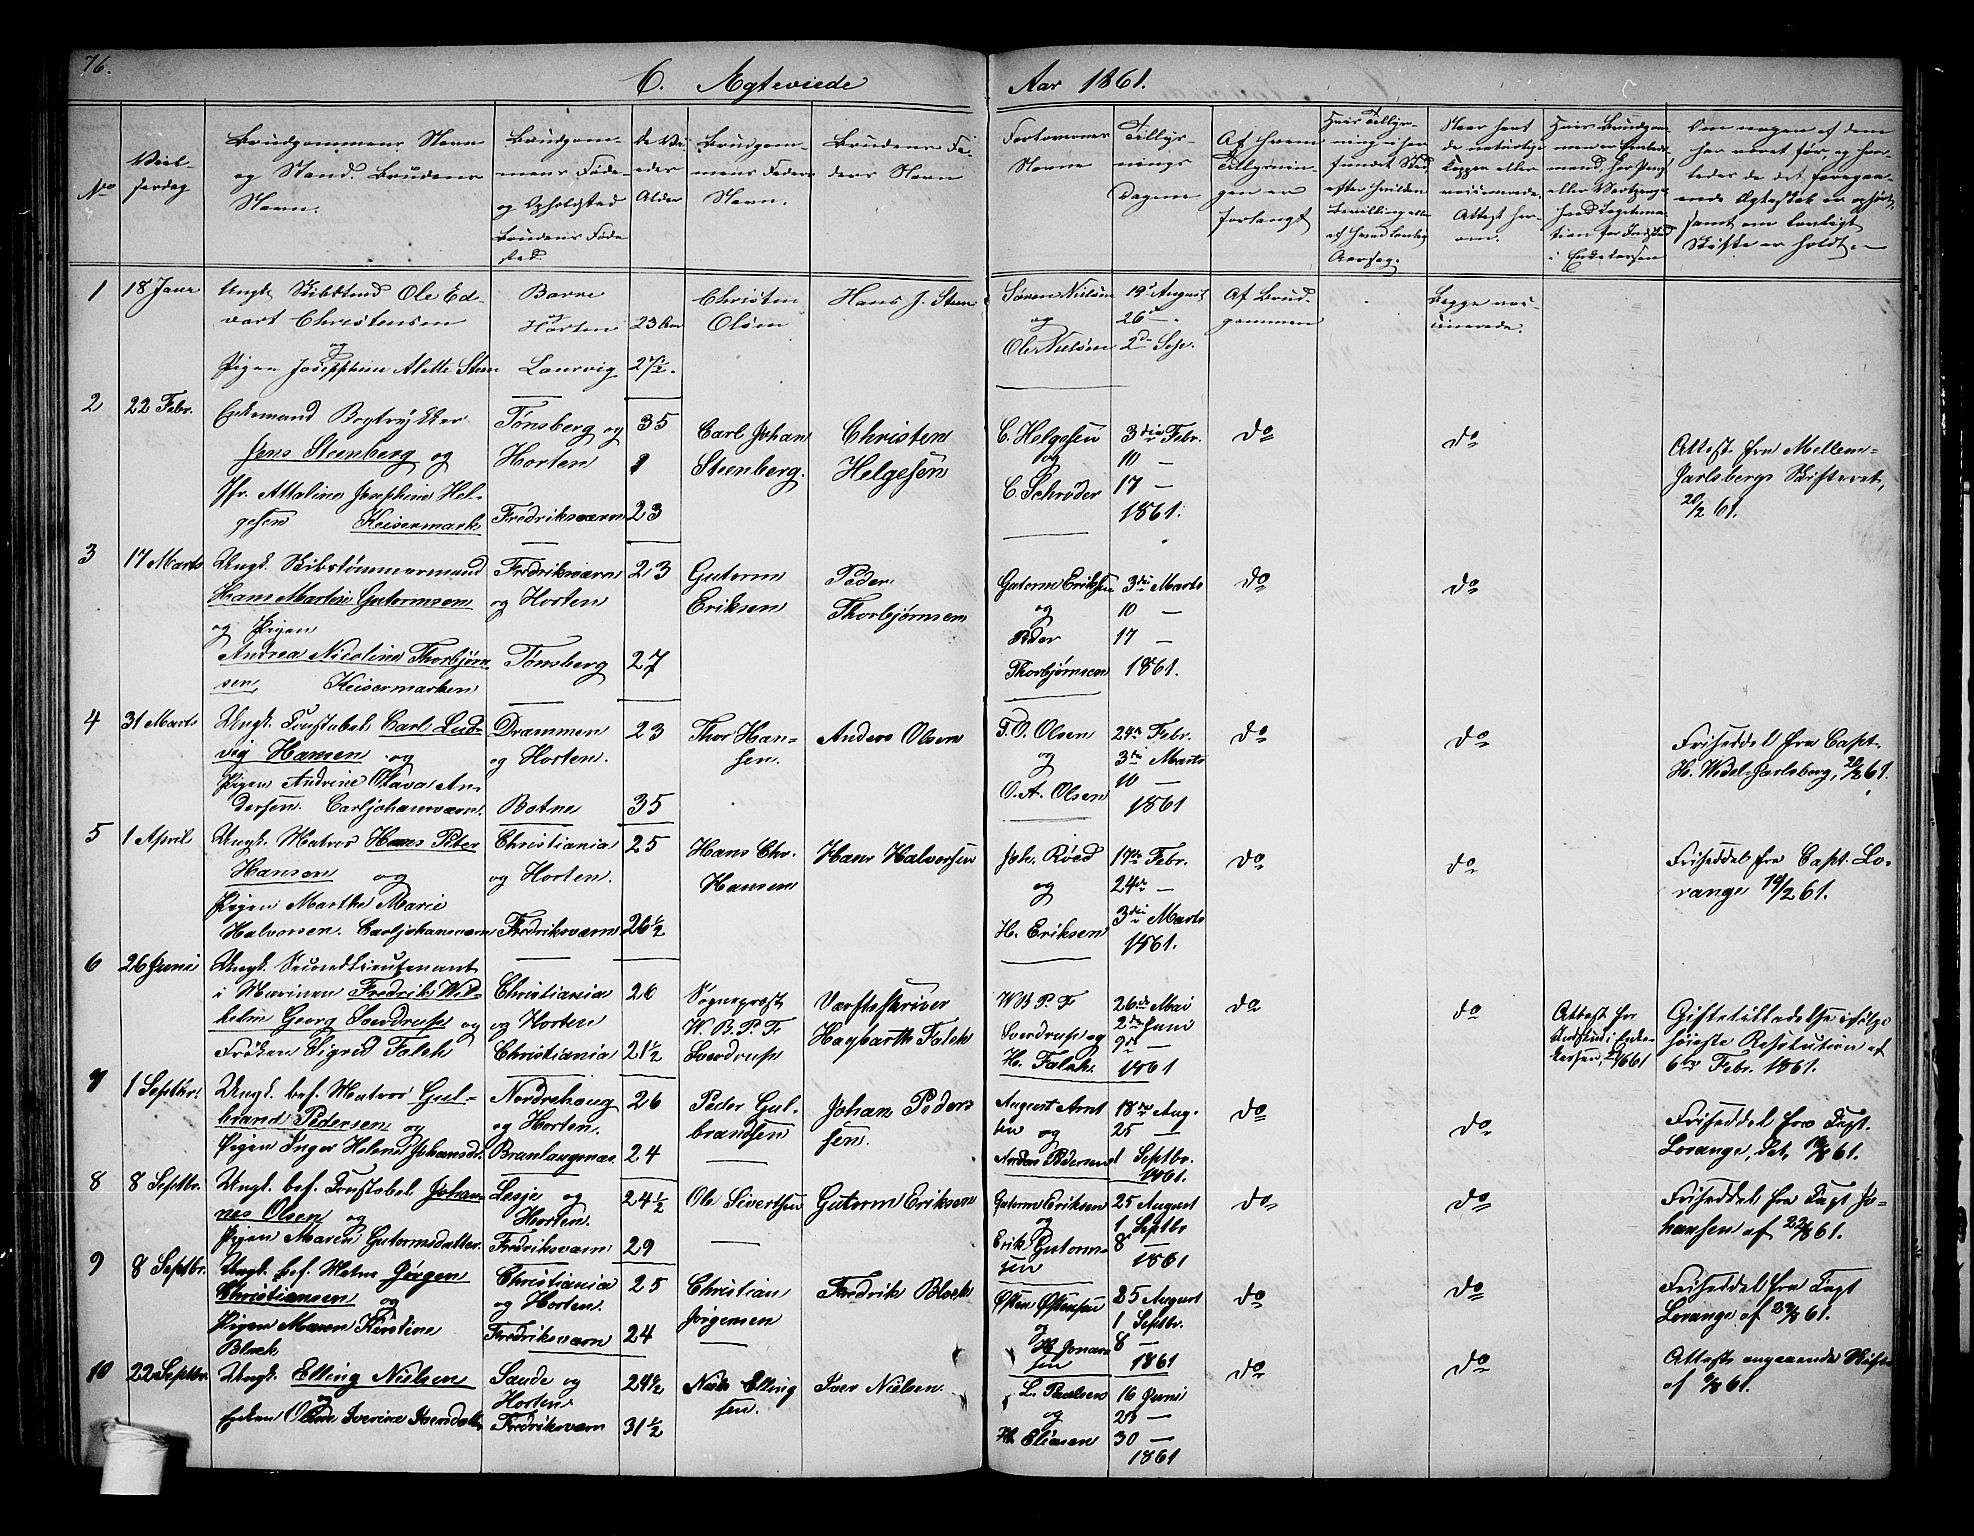 76.
C. Agteviede Aar 1861.
No
Viel-
sesdag
Brudgommens Navn
og Stand. Brudens
Navn.
Brudgom-
mens Føde
og Opholdsted
Brudens Føde
sted.
De Vi-
edes
Alder
Brudgom-
mens Faders
Navn.
Brudens Fa-
ders Navn
Forlovernes
Navne
Tillys-
nings
Dagene
Af hvem
Tillysnin-
gen er
forlangt
Om nogen af dem
har været før, og hvor-
ledes de det foregaa-
ende Egteskab er ophørt,
samt om lovligt
Skifte er holdt.
1 18 Janr
Ungk. Ole Ed-
vart Christensen
og
Pigen Josephine Alette Steen
Borre
og
Horten
Laurvig
23 Aar
27½.
Christen
Olsen
Hans J. Steen
Søren Nielsen
og
Ole Nielsen
19d August
26d —
2den Sep.
Af Brud-
gommen
Begge vac-
cinerede.
2 22 Febr.
Enkemand Bogtrykker
Jens Steenberg og
Jfr. Attaline Josephine Hel-
gesen Keisermark
Tønsberg og
Horten
Fredriksværn
35
23
Carl Johan
Steenberg.
Christen
Helgesen
C. Helgesen
og
C. Schrøder
3die Febr.
10 —
17 —
1861.
do
do
Attest fra Mellem-
Jarlsbergs Skifteret,
20/2 61.
3 17 Marts
Ungk. Skibstømmermand
Hans Martin Gutormsen
og Pigen
Andrea Nicoline Thorbjørn-
sen, Keisermarken
Fredriksværn
og Horten
Tønsberg
23
27
Gutorm
Eriksen
Peder
Thorbjørnsen
Gutorm Eriksen
og
Peder
Thorbjørnsen
3die Marts
10 —
17 —
1861.
do
do
4 31 Marts
Ungk. Constabel Carl Lud-
vig Hansen og
Pigen Andrine Olava An-
dersen. Carljohansværn.
Drammen
og Horten.
Botne
23
35
Thor Han-
sen.
Anders Olsen
T. O. Olsen
og
O. A. Olsen
24de Febr.
3die Marts
10 —
1861
do
do
Friseddel fra Capt.
H. Wedel-Jarlsberg, 20/2 61.
5 1 April
Ungk. Matros Hans Peter
Hansen og
Pigen Marthe Marie
Halvorsen. Carljohansværn
Christiania
og Horten.
Fredriksværn
25
26½
Hans Chr.
Hansen
Hans Halvorsen
Joh. Röed
og
H. Eriksen
17de Febr.
24de —
3die Marts
1861.
do
do
Friseddel fra Capt. Lo-
range 14/2 61.
6 26 Juni
Ungk. Secondlieutenant
i Marinen Fredrik Wil-
helm Georg Sverdrup og
Frøken Sigrid Falch
Christiania
og Horten
Christiania
26
21½
Sogneprest
W. B. P. F.
Sverdrup
Værftsskriver
Hagbarth Falch
W. B. P. F.
Sverdrup og
H. Falch
26de Mai
2den Juni
9de —
1861
do
do
Attest for
Indskud i Enke-
kassen,
Giftetilladelse ifølge
høieste Resolution af
6te Febr. 1861.
7 1 Septbr.
Ungk. bef. Matros Gul-
brand Pedersen og
Pigen Inger Helene Johansdr.
Nordrehoug
og Horten.
Brunlaugenæs.
26
24
Peder Gul-
brandsen
Johan Peder-
sen.
August Arnt
sen og
Anders Pedersen
18de Aug.
25 —
1 Septbr.
1861.
do
do
Friseddel fra Capt.
Lorange,
8 8 Septbr.
Ungk. bef. Constabel Johan-
nes Olsen og
Pigen Maren Gutormsdatter.
Lesje og
Horten.
Fredriksværn
24½
29
Ole Sivertsen
Gutorm Eriksen
Gutorm Eriksen
og
Erik Gutorm-
sen
25 August
1 Septbr
8
1861
do
do
Friseddel fra Capt Jo-
hansen af 22/8 61.
9 8 Septbr.
Ungk. bef. Matros Jörgen
Christiansen og
Pigen Maren Kirstine
Block
Christiania
og Horten.
Fredriksværn
25
24
Christian
Jörgensen
Fredrik Block
Østen Østensen
og
H. Jonas-
sen
25 August
1 Septbr.
8 —
1861
do
do
Friseddel fra Capt
Lorange af
10 22 Septbr.
Ungk. Elling Nielsen
og
Enken Severine Iversdatt.
Sande og
Horten
Fredriksværn
24½
31½
Niels Elling
sen.
Iver Nielsen.
L. Paulsen
og
H. Eliasen
16 Juni
23 —
30 —
1861
do
do
Attest angaaende Skifte